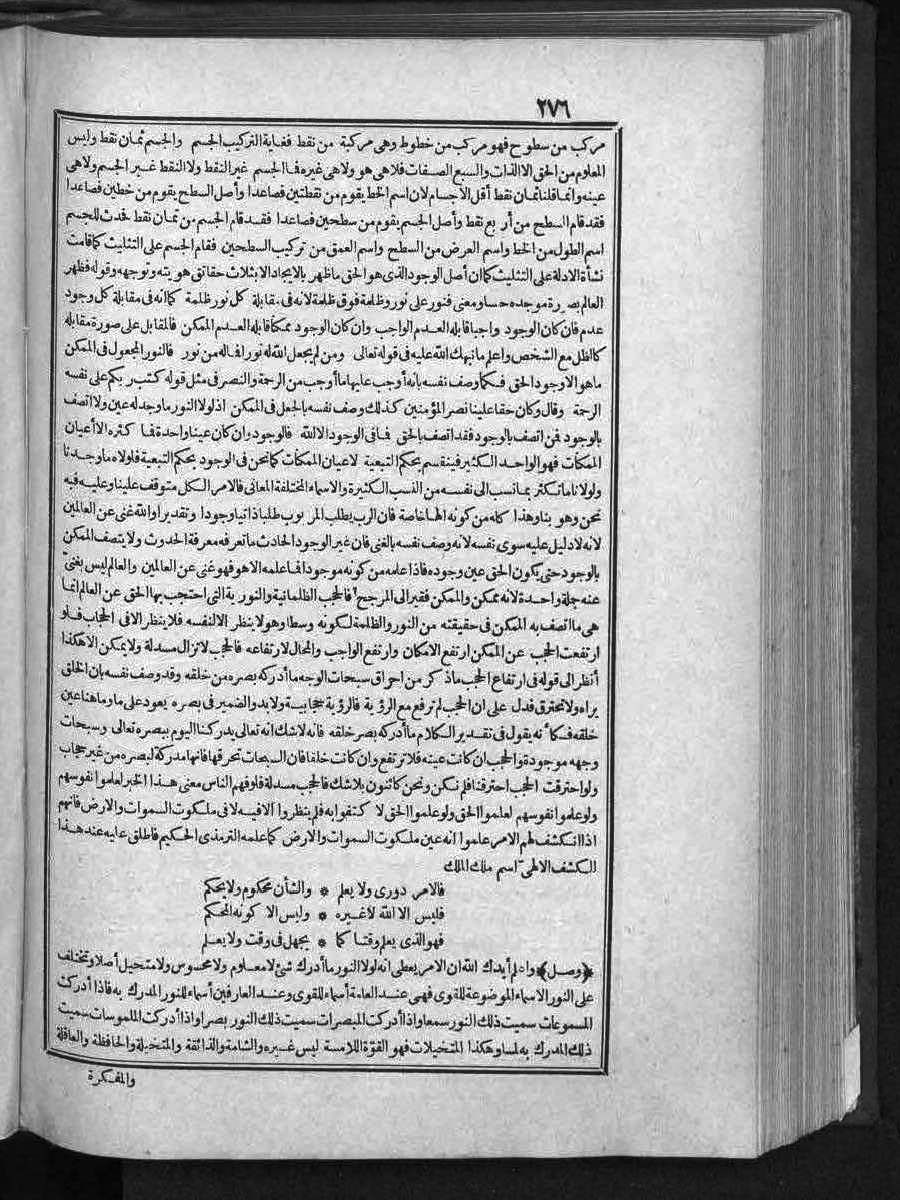 ٢٧٦
مركب من سطوح فهو مركب من خطوط وهى مركبة من نقط فغاية التركيب الجسم والجسم ثمان نقط وليس
المعلوم من الحق الا الذات والسبع الصفات فلا هى هو ولا هى غيره فما الجسم غير النقط ولا النقط غير الجسم ولا هى
عينه وانما قلنا ثمان نقط أقل الاجسام لان اسم الخط يقوم من نقطتين فصاعدا وأصل السطح يقوم من خطين فصاعدا
فقد قام السطح من أربع نقط وأصل الجسم يقوم من سطحين فصاعدا فقد قام الجسم من ثمان نقط فحدث للجسم
اسم الطول من الخط واسم العرض من السطح واسم العمق من تركيب السطحين فقام الجسم على التثليث كما قامت
نشأة الادلة على التثليث كما ان أصل الوجود الذى هو الحق ما ظهر بالايجاد الا بثلاث حقائق هويته وتوجهه وقوله فظهر
العالم بصورة موجده حسا ومعنى فنور على نور وظلمة فوق ظلمة لانه فى مقابلة كل نور ظلمة كما انه فى مقابلة كل وجود
عدم فان كان الوجود واجبا قابله العدم الواجب وان كان الوجود ممكنا قابله العدم الممكن فالمقابل على صورة مقابله
كالظل مع الشخص واعلم ما نبهك الله عليه فى قوله تعالى ومن لم يجعل الله له نورا فما له من نور فالنور المجعول فى الممكن
ما هو الا وجود الحق فكما وصف نفسه بانه أوجب عليها ما أوجب من الرحمة والنصر فى مثل قوله كتب ربكم على نفسه
الرحمة وقال وكان حقا علينا نصر المؤمنين كذلك وصف نفسه بالجعل فى الممكن اذ لولا النور ما وجد له عين ولا اتصف
بالوجود فمن اتصف بالوجود فقد اتصف بالحق فما فى الوجود الا الله فالوجود وان كان عينا واحدة فما كثره الا أعيان
الممكنات فهو الواحد الكثير فينقسم بحكم التبعية لاعيان الممكنات كما نحن فى الوجود بحكم التبعية فلولاه ما وجدنا
ولولانا ما تكثر بما نسب الى نفسه من النسب الكثيرة والاسماء المختلفة المعانى فالامر الكل متوقف علينا وعليه فبه
نحن وهو بنا وهذا كله من كونه الها خاصة فان الرب يطلب المربوب طلبا ذاتيا وجودا وتقديرا والله غنى عن العالمين
لانه لا دليل عليه سوى نفسه لانه وصف نفسه بالغنى فان غير الوجود الحادث ما تعرفه معرفة الحدوث ولا يتصف الممكن
بالوجود حتى يكون الحق عين وجوده فاذا علمه من كونه موجودا فما علمه الا هو فهو غنى عن العالمين والعالم ليس بغنىّ
عنه جملة واحدة لانه ممكن والممكن فقير الى المرجح فالحجب الظلمانية والنورية التى احتجب بها الحق عن العالم انما
هى ما اتصف به الممكن فى حقيقته من النور والظلمة لكونه وسطا وهو لا ينظر الا لنفسه فلا ينظر الا فى الحجاب فلو
ارتفعت الحجب عن الممكن ارتفع الامكان وارتفع الواجب والمحال لارتفاعه فالحجب لا تزال مسدلة ولا يمكن الا هكذا
أنظر الى قوله فى ارتفاع الحجب ما ذكر من احراق سبحات الوجه ما أدركه بصره من خلقه وقد وصف نفسه بان الخلق
يراه ولا تحترق فدل على ان الحجب لم ترفع مع الرؤية فالرؤية حجابية ولا بد والضمير فى بصره يعود على ما وما هنا عين
خلقه فكأنه يقول فى تقدير الكلام ما أدركه بصر خلقه فانه لا شك انه تعالى يدركنا اليوم ببصره تعالى وسبحات
وجهه موجودة والحجب ان كانت عينه فلا ترتفع وان كانت خلقا فان السبحات تحرقها فانها مدركة لبصره من غير حجاب
ولو احترقت الحجب احترقنا فلم نكن ونحن كائنون بلا شك فالحجب مسدلة فلو فهم الناس معنى هذا الخبر لعلموا نفوسهم
ولو علموا نفوسهم لعلموا الحق ولو علموا الحق لاكتفوا به فلم ينظروا الا فيه لا فى ملكوت السموات والارض فانهم
اذا انكشف لهم الامر علموا انه عين ملكوت السموات والارض كما علمه الترمذى الحكيم فاطلق عليه عند هذا
الكشف الالهىّ اسم ملك الملك
فالامر دورى ولا يعلم * والشأن محكوم ولا يحكم
فليس الا الله لا غيره * وليس الا كونه المحكم
فهو الذى يعلم وقتا كما * يجهل فى وقت ولا يعلم
﴿وصل﴾ واعلم أيدك الله ان الامر يعطى انه لولا النور ما أدرك شئ لا معلوم ولا محسوس ولا متخيل أصلا وتختلف
على النور الاسماء الموضوعة للقوى فهى عند العامة أسماء للقوى وعند العارفين أسماء للنور المدرك به فاذا أدركت
المسموعات سميت ذلك النور سمعا واذا أدركت المبصرات سميت ذلك النور بصرا واذا أدركت الملموسات سميت
ذلك المدرك به لمسا وهكذا المتخيلات فهو القوّة اللامسة ليس غيره والشامة والذائقة والمتخيلة والحافظة والعاقلة
والمفكرة